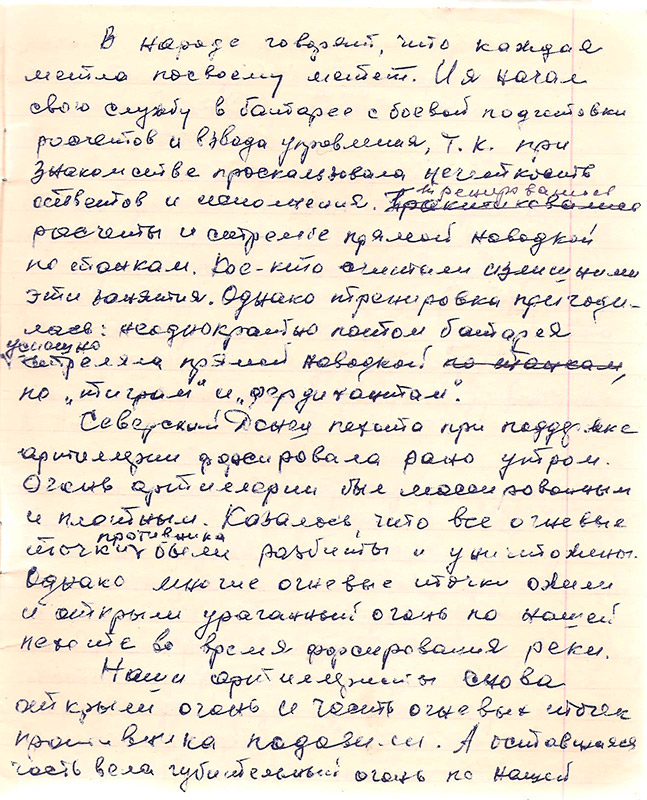 В народе говорят, что каждая
метла посвоему метет. И я начал
свою службу в батарее с боевой подготовки
расчетов и взвода управления, т.к. при
знакомстве проскальзовала нечеткость
ответов и исполнения. тренировались
расчеты и стрельбе прямой наводкой
по танкам. Кое-кто считали излишними
эти занятия. Однако тренировки пригоди-
лась: неоднократно потом батарея
успешно
стреляла прямой наводкой по танкам,
по „тиграм" и „фердинантам".
Северский Донец пехота при поддержке
артиллерии форсировала рано утром.
Огонь артиллерии был массированным
и плотным. Казалось, что все огневые
противника
точки были разбиты и уничтожены.
Однако многие огневые точки ожили
и открыли ураганный огонь по нашей
пехоте во время форсирования реки.
Наши артиллеристы снова
открыли огонь и часть огневых точек
противника подавили. А оставшаяся
часть вела губительный огонь по нашей